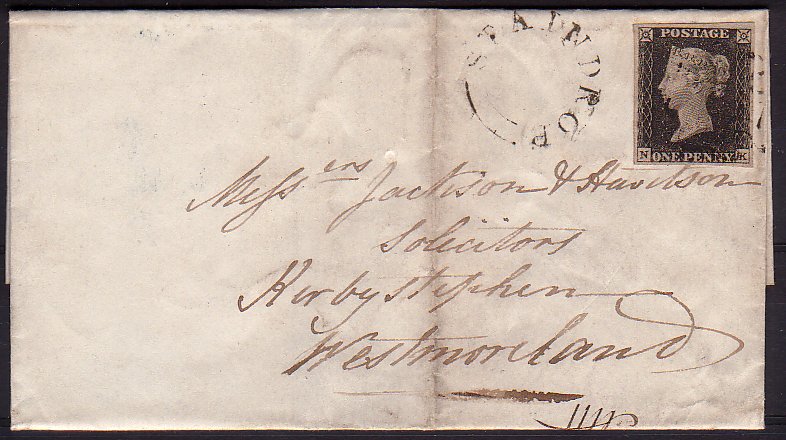 STAINDROP
POSTAGE
N ONE PENNY K
Messers Jackson & Havelson
Solicitors
Kirby Stephen
Westmoreland